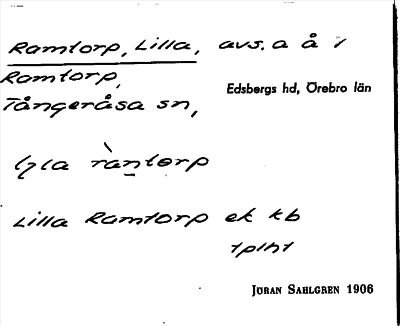 Ramtorp, Lilla, avs. a å i
Ramtorp,
Tångeråsa sn,
Edsbergs hd, Örebro län
lɩla ràntorp
Lilla Ramtorp ek kb
1p1h1
JÖRAN SAHLGREN 1906